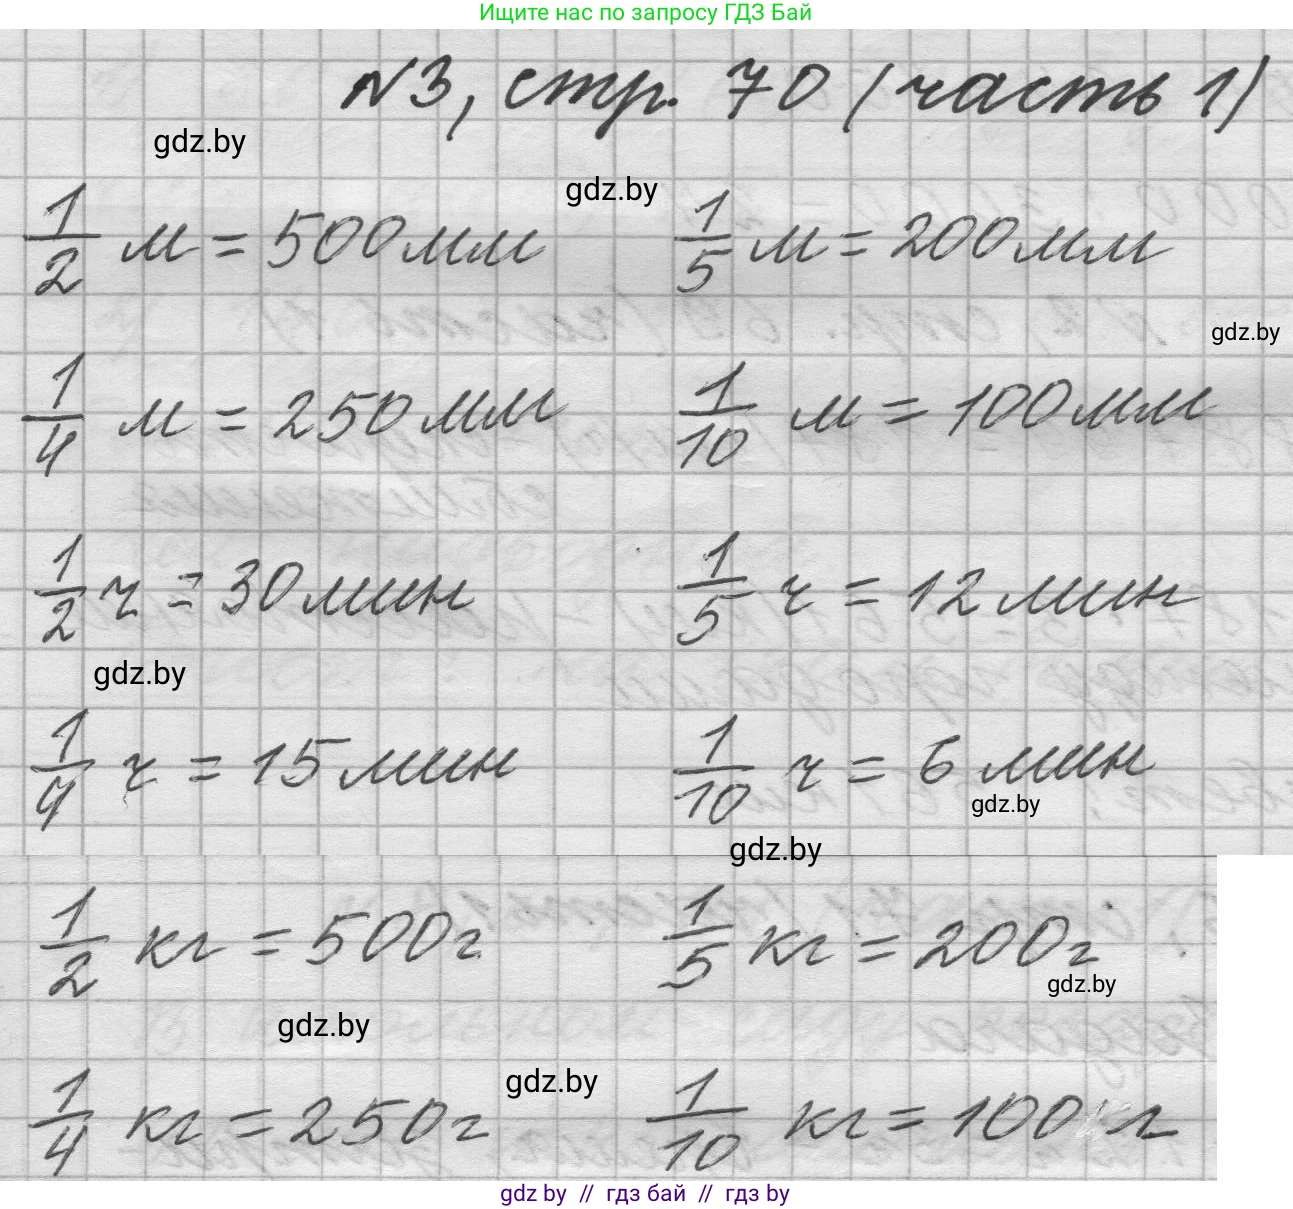 Ищите нас по запросу ГДЗ Бай
№3, стр. 70 (часть 1)
gdz.by
gdz.by
1/2 м = 500мм 1/5 м = 200мм
gdz.by
1/4 м = 250мм 1/10 м = 100мм
1/2 ч = 30мин 1/5 ч = 12 мин
gdz.by
1/4 ч = 15мин 1/10 ч = 6 мин
gdz.by
gdz.by
1/2 кг = 500г 1/5 кг = 200г
gdz.by
gdz.by
gdz.by
1/4 кг = 250г 1/10 кг = 100 г
gdz by // гдз бай // гдз by